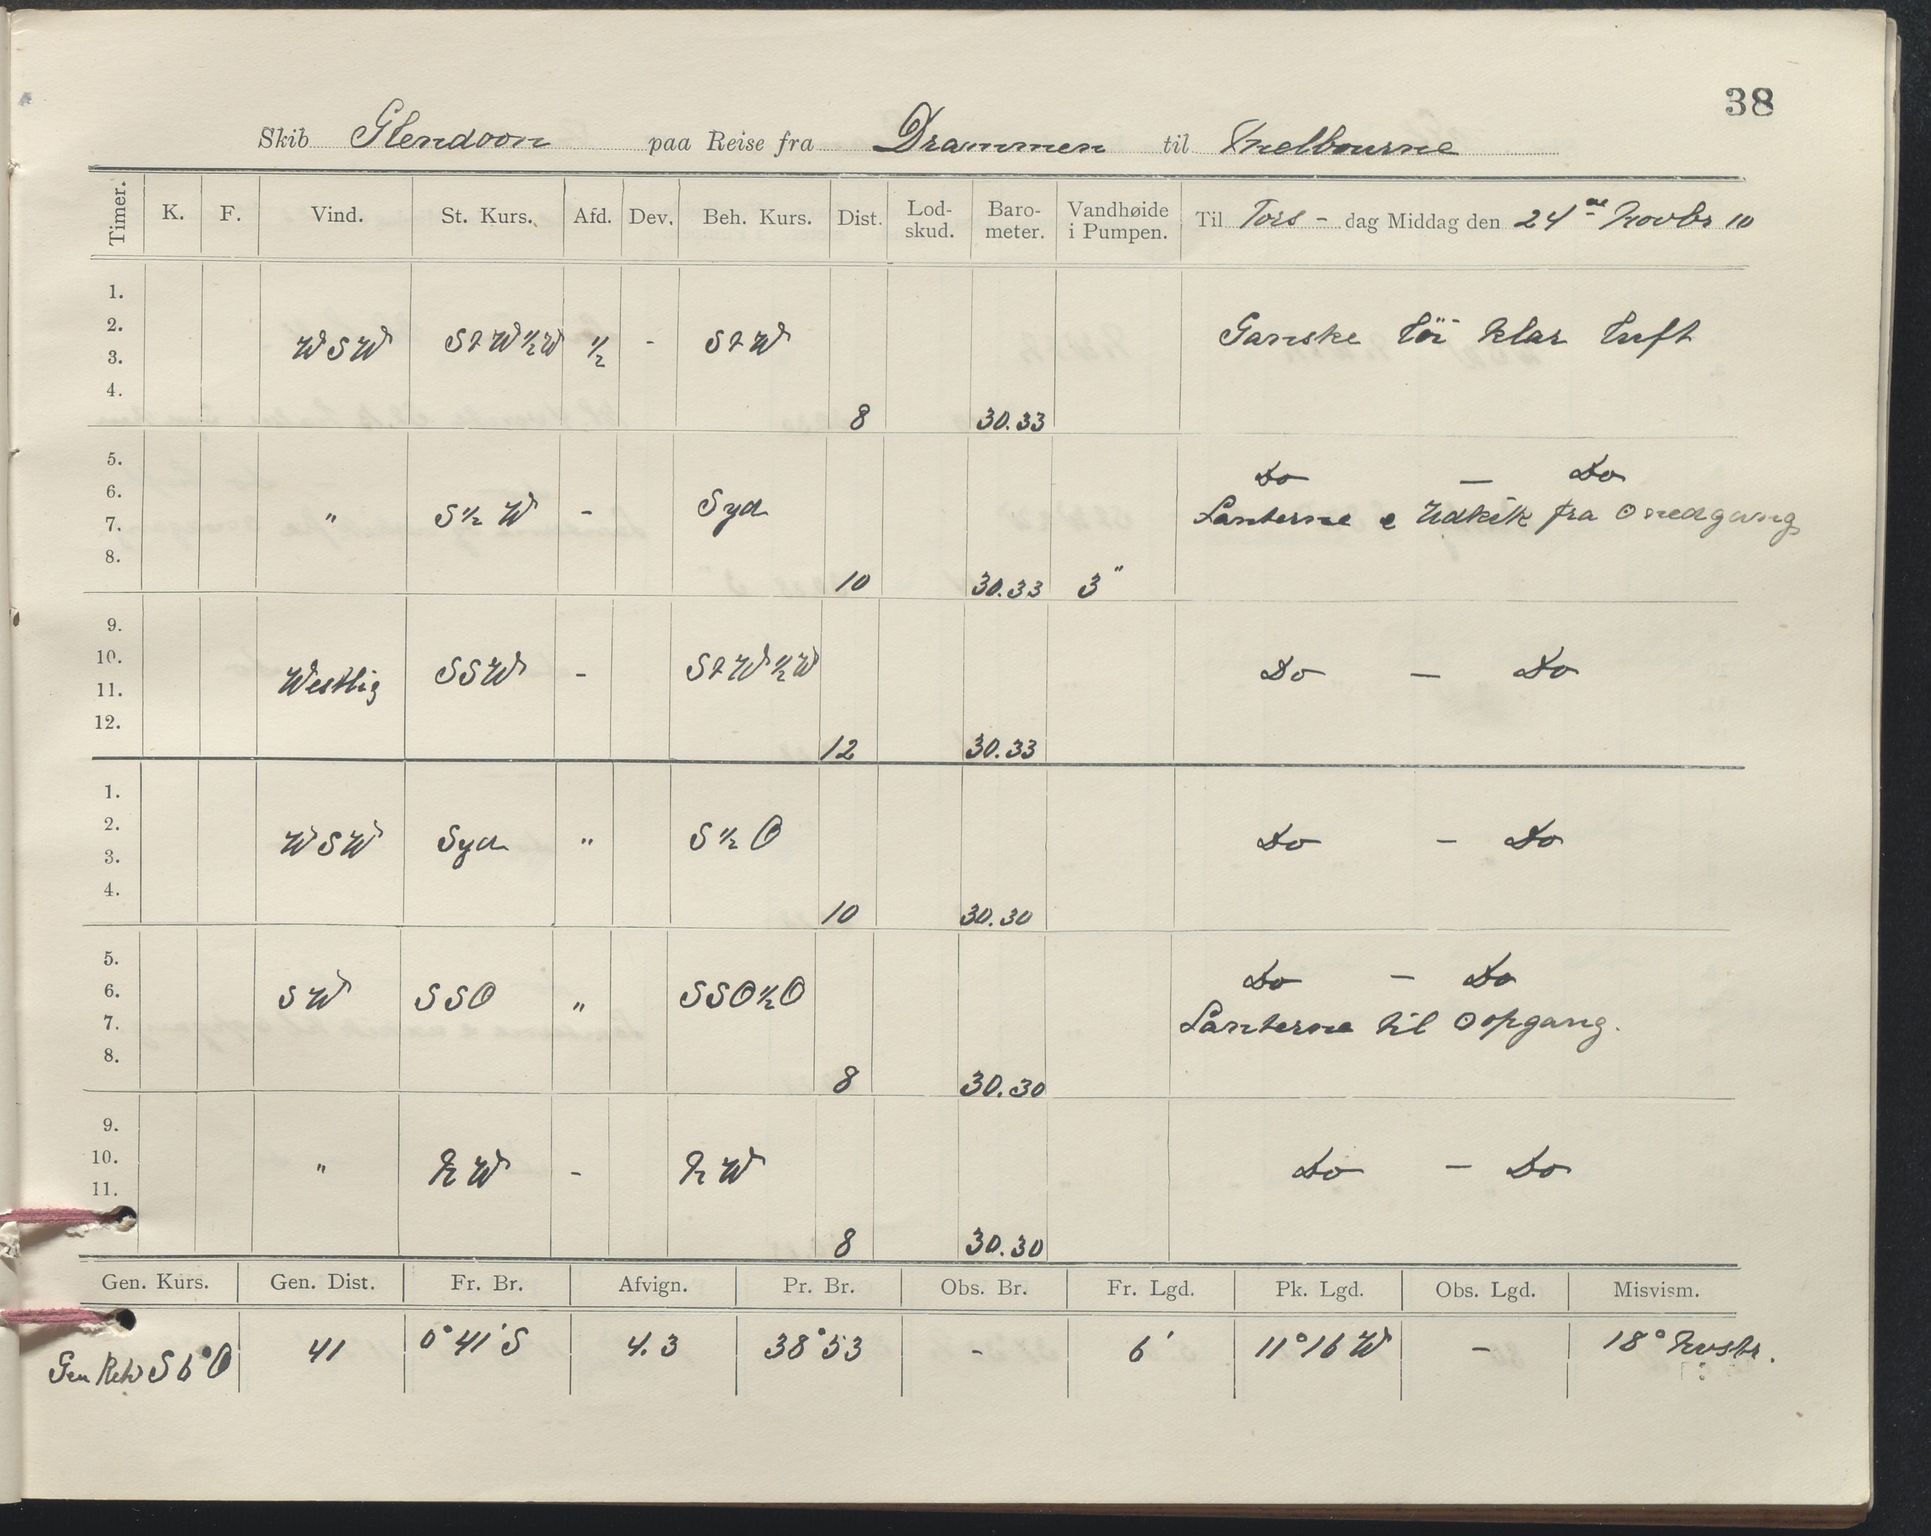 38
Skib Glendoon paa Reise fra Drammen til Melbourne
Timer. K. F. Vind. St. Kurs. Afd. Dev. Beh. Kurs. Dist. Lod-skud. Baro-meter. Vandhøide i Pumpen. Til Tors - dag Middag den 24de Novbr 10
1.
2.
3. WSW StW½W ½ - StW Ganske Löi klar Luft
4. 8 30.33
5. Do — Do
6.
7. " S½W - Syd Lanterne e Udkik fra ʘ nedgang
8. 10 30.33 3"
9.
10.
11. Westlig SSW - StW½W Do — Do
12. 12 30.33
1.
2.
3. WSW Syd " S½O Do — Do
4. 10 30.30
5. Do — Do
6. SW SSO " SSO½O
7. Lanterne til ʘ opgang.
8. 8 30.30
9.
10. " NW - NW Do — Do
11.
8 30.30
Gen. Kurs. Gen. Dist. Fr. Br. Afvign. Pr. Br. Obs. Br. Fr. Lgd. Pk. Lgd. Obs. Lgd. Misvism.
Gen Retv S 6° O 41 0° 41' S 4.3 38° 53 - 6' 11° 16 W - 18° Nvstr.